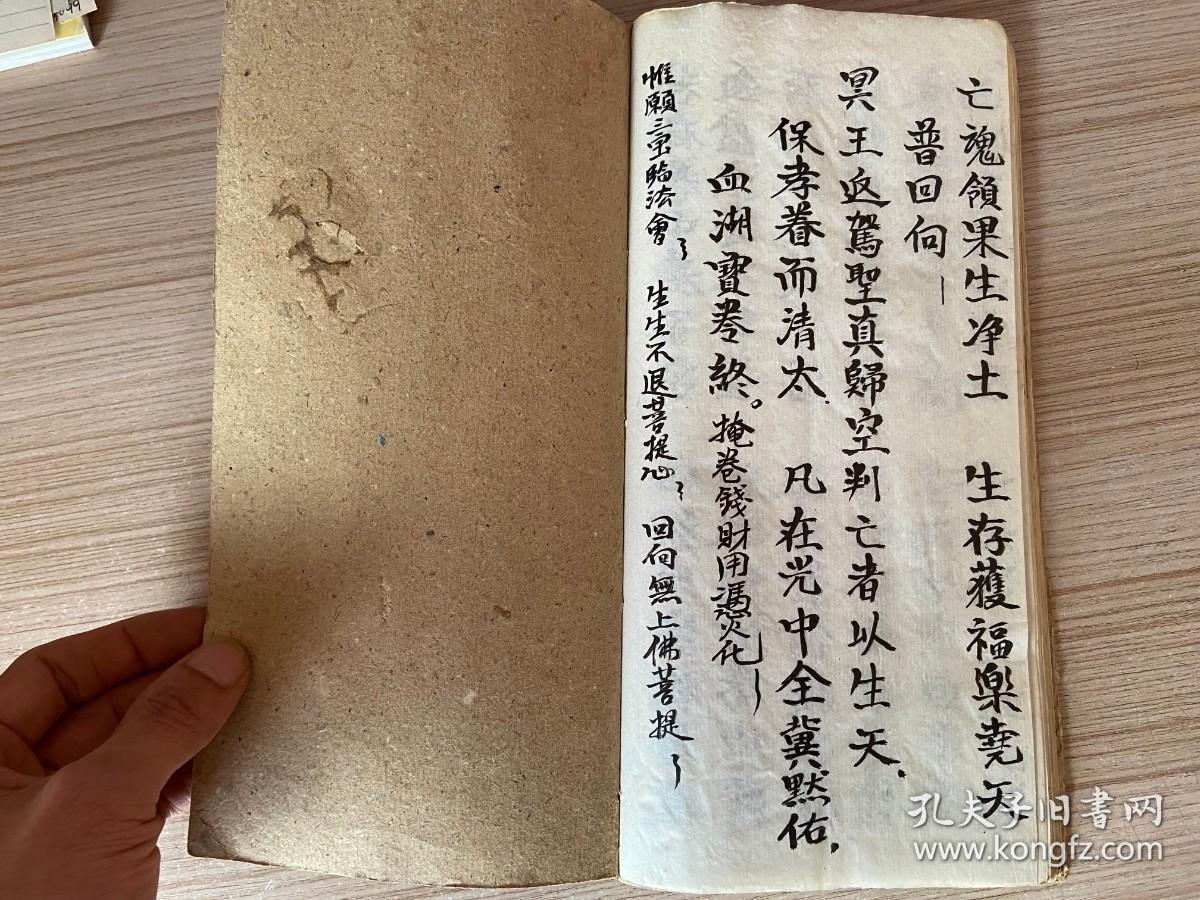 亡魂領果生净土 生存獲福樂堯天
普回向
冥王返駕聖真歸空判亡者以生天.
保孝眷而清太. 凡在光中全冀默佑,
血湖寶卷終。掩卷錢財用憑火化
惟願三寶臨法會 生生不退菩提心 回向無上佛菩提
孔夫子旧书网
www.kongfz.com